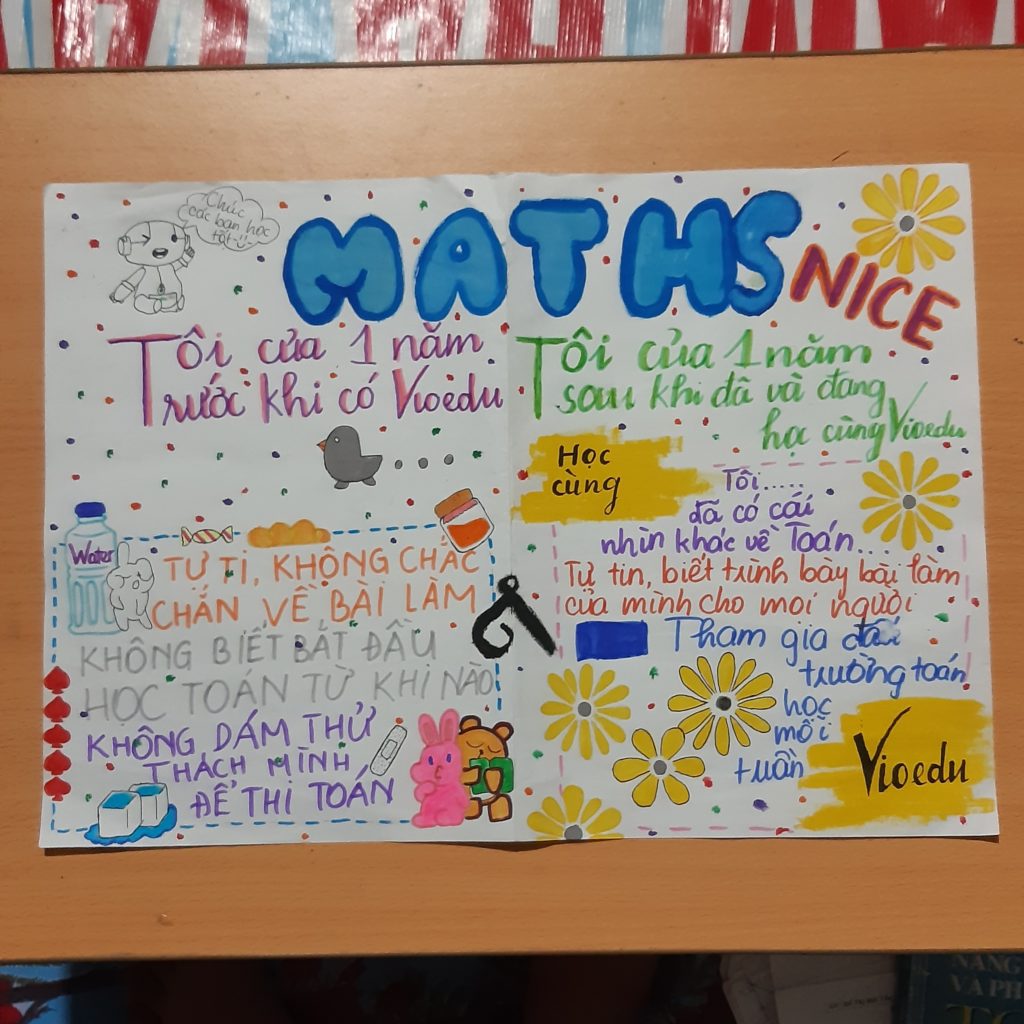 Chúc
các bạn học
tốt
MATHS
NICE
Tôi của 1 năm
Trước khi có Vioedu
Tôi của 1 năm
sau khi đã và đang
học cùng Vioedu
Học
cùng
Tôi.....
đã có cái
nhìn khác về Toán...
Tự tin, biết trình bày bài làm
của mình cho mọi người
Tham gia đấu
trường toán
học
mỗi
tuần
Vioedu
Water
TỰ TI, KHÔNG CHẮC
CHẮN VỀ BÀI LÀM
KHÔNG BIẾT BẮT ĐẦU
HỌC TOÁN TỪ KHI NÀO
KHÔNG DÁM THỬ
THÁCH MÌNH
ĐỂ THI TOÁN
NĂNG
VÀ PH